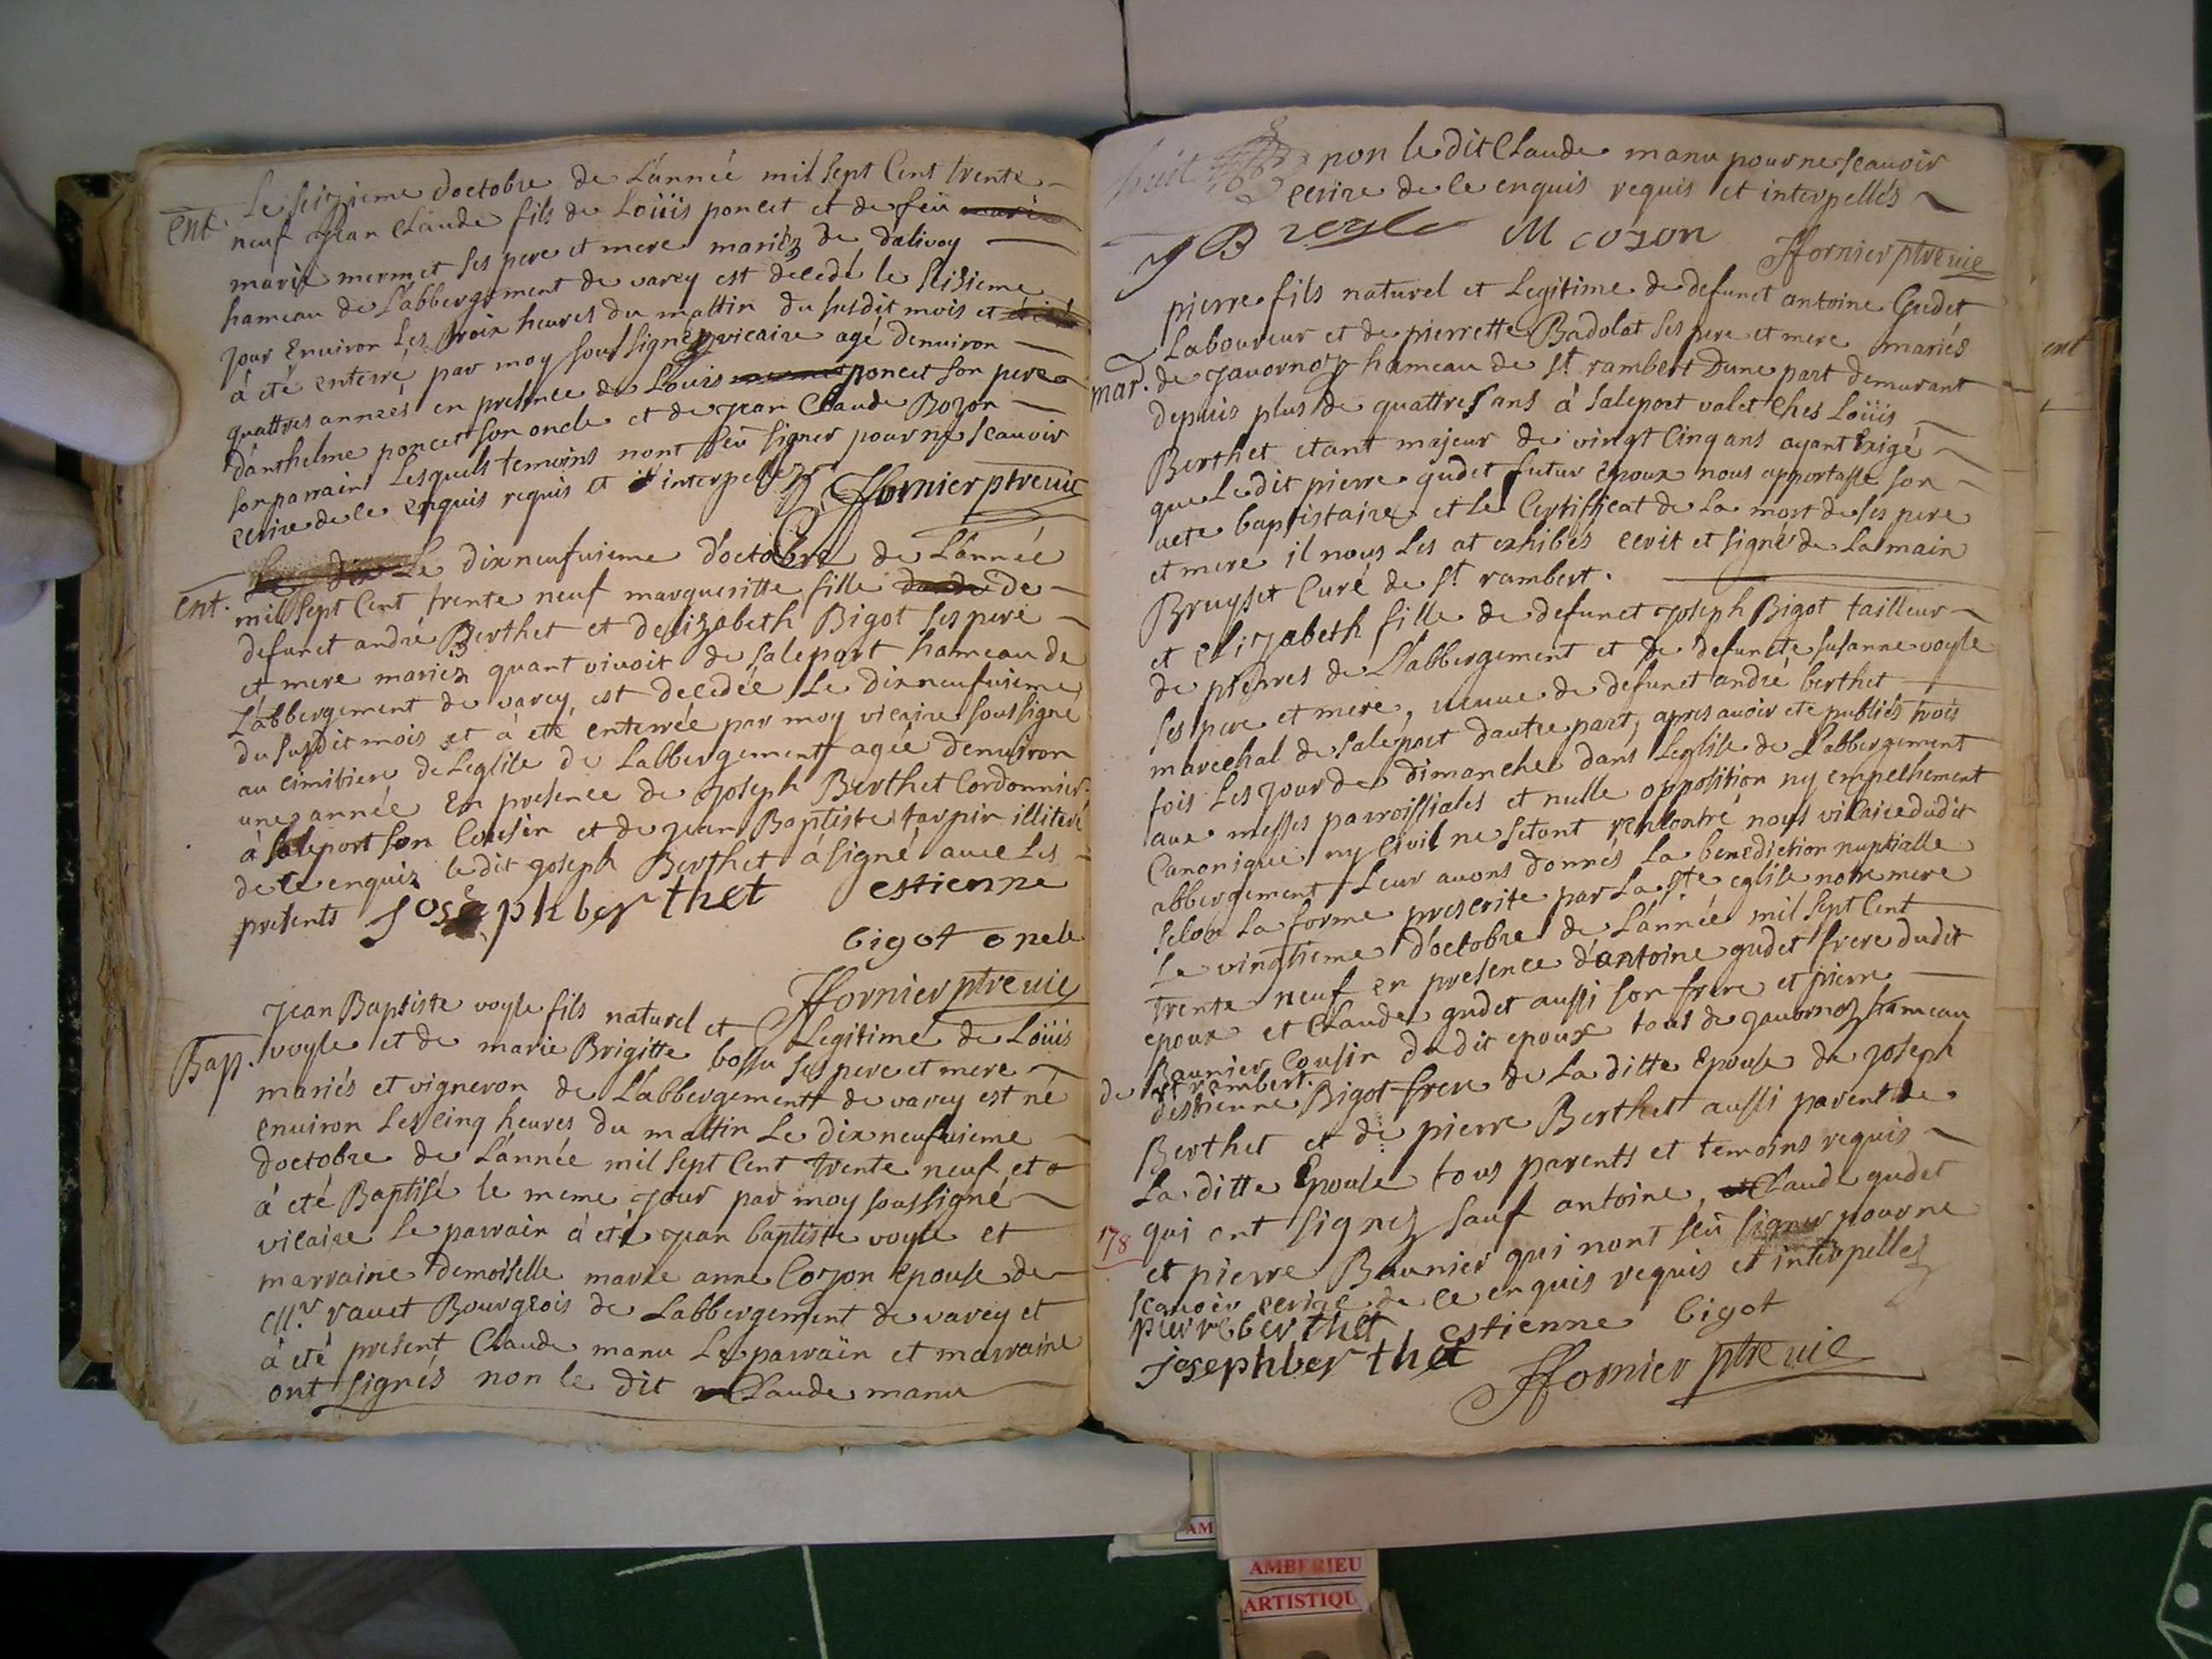 Le seizieme doctobre de L'année mil sept Cent trente
ent. neuf Jean Claude fils de Loüis poncet et de feu
marie mermet ses pere et mere mariéz de dalivoy
hameau de L'abbergement de varey est decedé le seisieme
jour Environ Les trois heures du mattin du susdit mois et
à été enterré par moy soussigné vicaire agé denviron
quattres années en presence de Louis poncet son pere
d'anthelme poncet son oncle et de jean Claude Bozon
son parrain Lesquels temoins nont seu signer pour ne scauoir
ecrire de ce enquis requis et interpellez
ffornier ptre vic
Le dixneufuieme d'octobre de L'année
ent. mil sept Cent trente neuf margueritte fille de
defunct andré Berthet et delizabeth Bigot ses pere
et mere mariez quant vivoit de saleport hameau de
L'abbergement de varey, est decedée Le dixneufuieme
du susdit mois et à eté enterrée par moy vicaire soussigné
au cimitiere de Leglise de Labbergement agée denuiron
une année En presence de Joseph Berthet Cordonnier
à saleport son Cousin et de jean Baptiste tarpin illiteré
de ce enquis ledit joseph Berthet à signé avec Les
presents Josephberthet estienne
bigot oncle
ffornier ptre vic
Jean Baptiste voyle fils naturel et Legitime de Loüis
Bap. voyle et de marie Brigitte bossu ses pere et mere
mariés et vigneron de L'abbergement de varey est né
environ Les cinq heures du mattin Le dixneufuieme
doctobre de L'année mil sept Cent trente neuf et
à eté Baptisé le meme jour par moy soussigné
vicaire Le parrain à eté jean baptiste voyle et
marraine demoiselle marie anne Cozon epouse de
Mr. ravet Bourgeois de Labbergement de varey et
à eté present Claude manu Le parrain et marraine
ont signés non le dit Claude manu
huit non le dit Claude manu pour ne scauoir
ecrire de ce enquis requis et interpellés
J B voyle M cozon ffornier ptre vic
pierre fils naturel et Legitime de defunct antoine Gudet
Laboureur et de pierrette Badolat ses pere et mere mariés
mar. de javornoz hameau de st. rambert Dune part demurant
depuis plus de quattres ans à saleport valet Ches Loüis
Berthet etant majeur de vingt Cinq ans ayant Exigé
que Le dit pierre gudet futur epoux nous apportasse son
acte baptistaire et Le Certifficat de La mort de ses pere
et mere il nous Les at exhibés ecrit et signé de La main
Bruyset Curé de st. rambert.
et elizabeth fille de defunct joseph Bigot tailleur
de pierres de L'abbergement et de defuncte susanne voyle
ses pere et mere, veuue de defunct andré berthet
marechal de saleport dautre part, apres auoir eté publiés trois
fois Les jour de dimanche dans Leglise de L'abbergement
aux messes parroissiales et nulle opposition ny empechement
Canonique ny Civil ne setant rencontré nous vicaire dudit
abbergement Leur auons donnés La benediction nuptialle
selon La forme prescrite par La ste. eglise notre mere
Le vingtieme d'octobre de L'année mil sept Cent
trente neuf en presence d'antoine gudet frere dudit
epoux et Claude gudet aussi son frere et pierre
Baunier Cousin dudit epoux tous de javornoz hameau
de st rambert.
destienne Bigot frere de La ditte epouse de joseph
Berthet et de pierre Berthet aussi parent de
La ditte Epouse tous parents et temoins requis
qui ont signez sauf antoine, Claude gudet
178
et pierre Baunier qui nont seu signer pour ne
scauoir ecrire de ce enquis requis et interpellez
pierreberthet estienne bigot
josephberthet ffornier ptre vic
ent
AM
AMBERIEU
ARTISTIQU